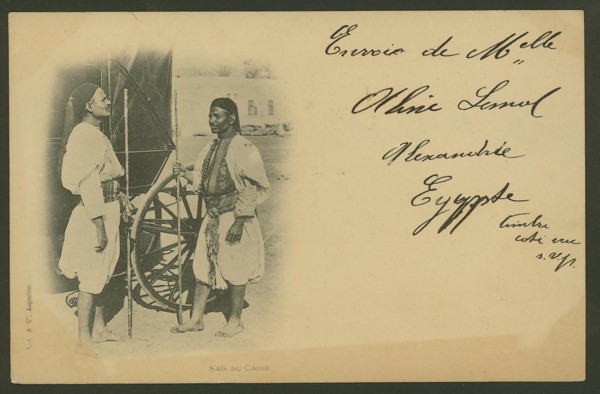 Envoie de Melle
Aline
Alexandrie
Egypte
timbre
coté vue
s.v.p.
SAÏS DU CAIRE